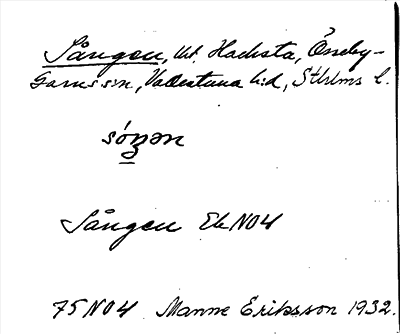 Sången, ut. Hacksta, Össeby-
Garns sn, Vallentuna hd, Sthlms l.
sóŋən
Sången Ek NO4
75 NO4 Manne Eriksson 1932.